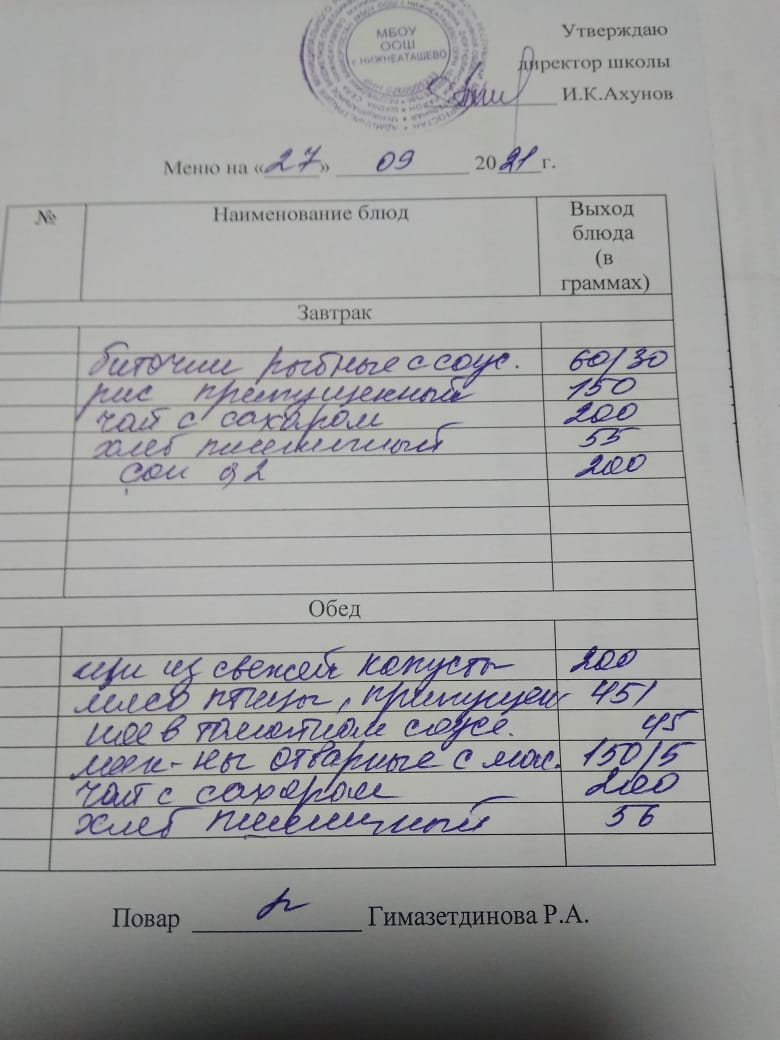 МБОУ
ООШ
с НИЖНЕАТАШЕВО
Утверждаю
директор школы
И.К.Ахунов
Меню на «27» 09 2021 г.
№ Наименование блюд Выход
блюда
(в
граммах)
Завтрак
биточки рыбные с соус. 60/30
рис припущенный 150
чай с сахаром 200
хлеб пшеничный 55
сок 0,2 200
Обед
щи из свежей капусты 200
мясо птицы, припущен 45/
ное в томатном соусе. 45
мак-ны отварные с мас. 150/5
чай с сахаром 200
хлеб пшеничный 56
Повар Гимазетдинова Р.А.